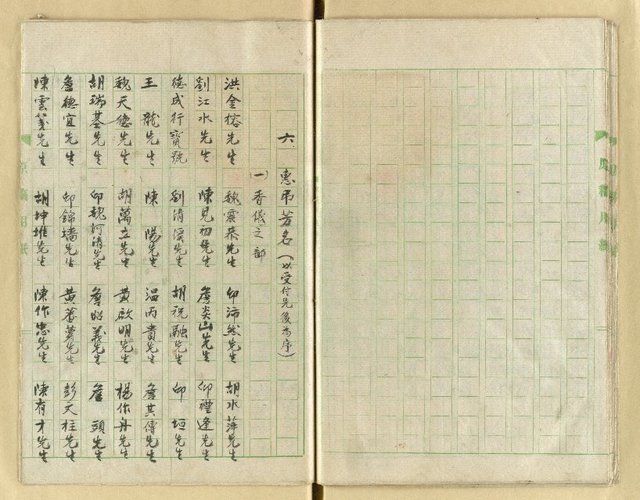 六、惠弔芳名(以受付先後為序)
一)香儀之部
洪金榕先生 魏霖恭先生 邱沛然先生 胡水萍先生
劉江水先生 陳見初先生 詹炎山先生 邱禮逢先生
德成行寶號 劉清優先生 胡祝融先生 邱 垣先生
王 龍先生 陳 陽先生 温丙貴先生 詹其傳先生
魏天德先生 胡萬立先生 黄啟明先生 楊作丹先生
胡瑞基先生 邱魏阿清先生 詹昭義先生 詹 頭先生
詹德宜先生 邱錦墻先生 黄養 先生 彭天柱先生
陳雲箋先生 胡坤堆先生 陳作忠先生 陳有才先生